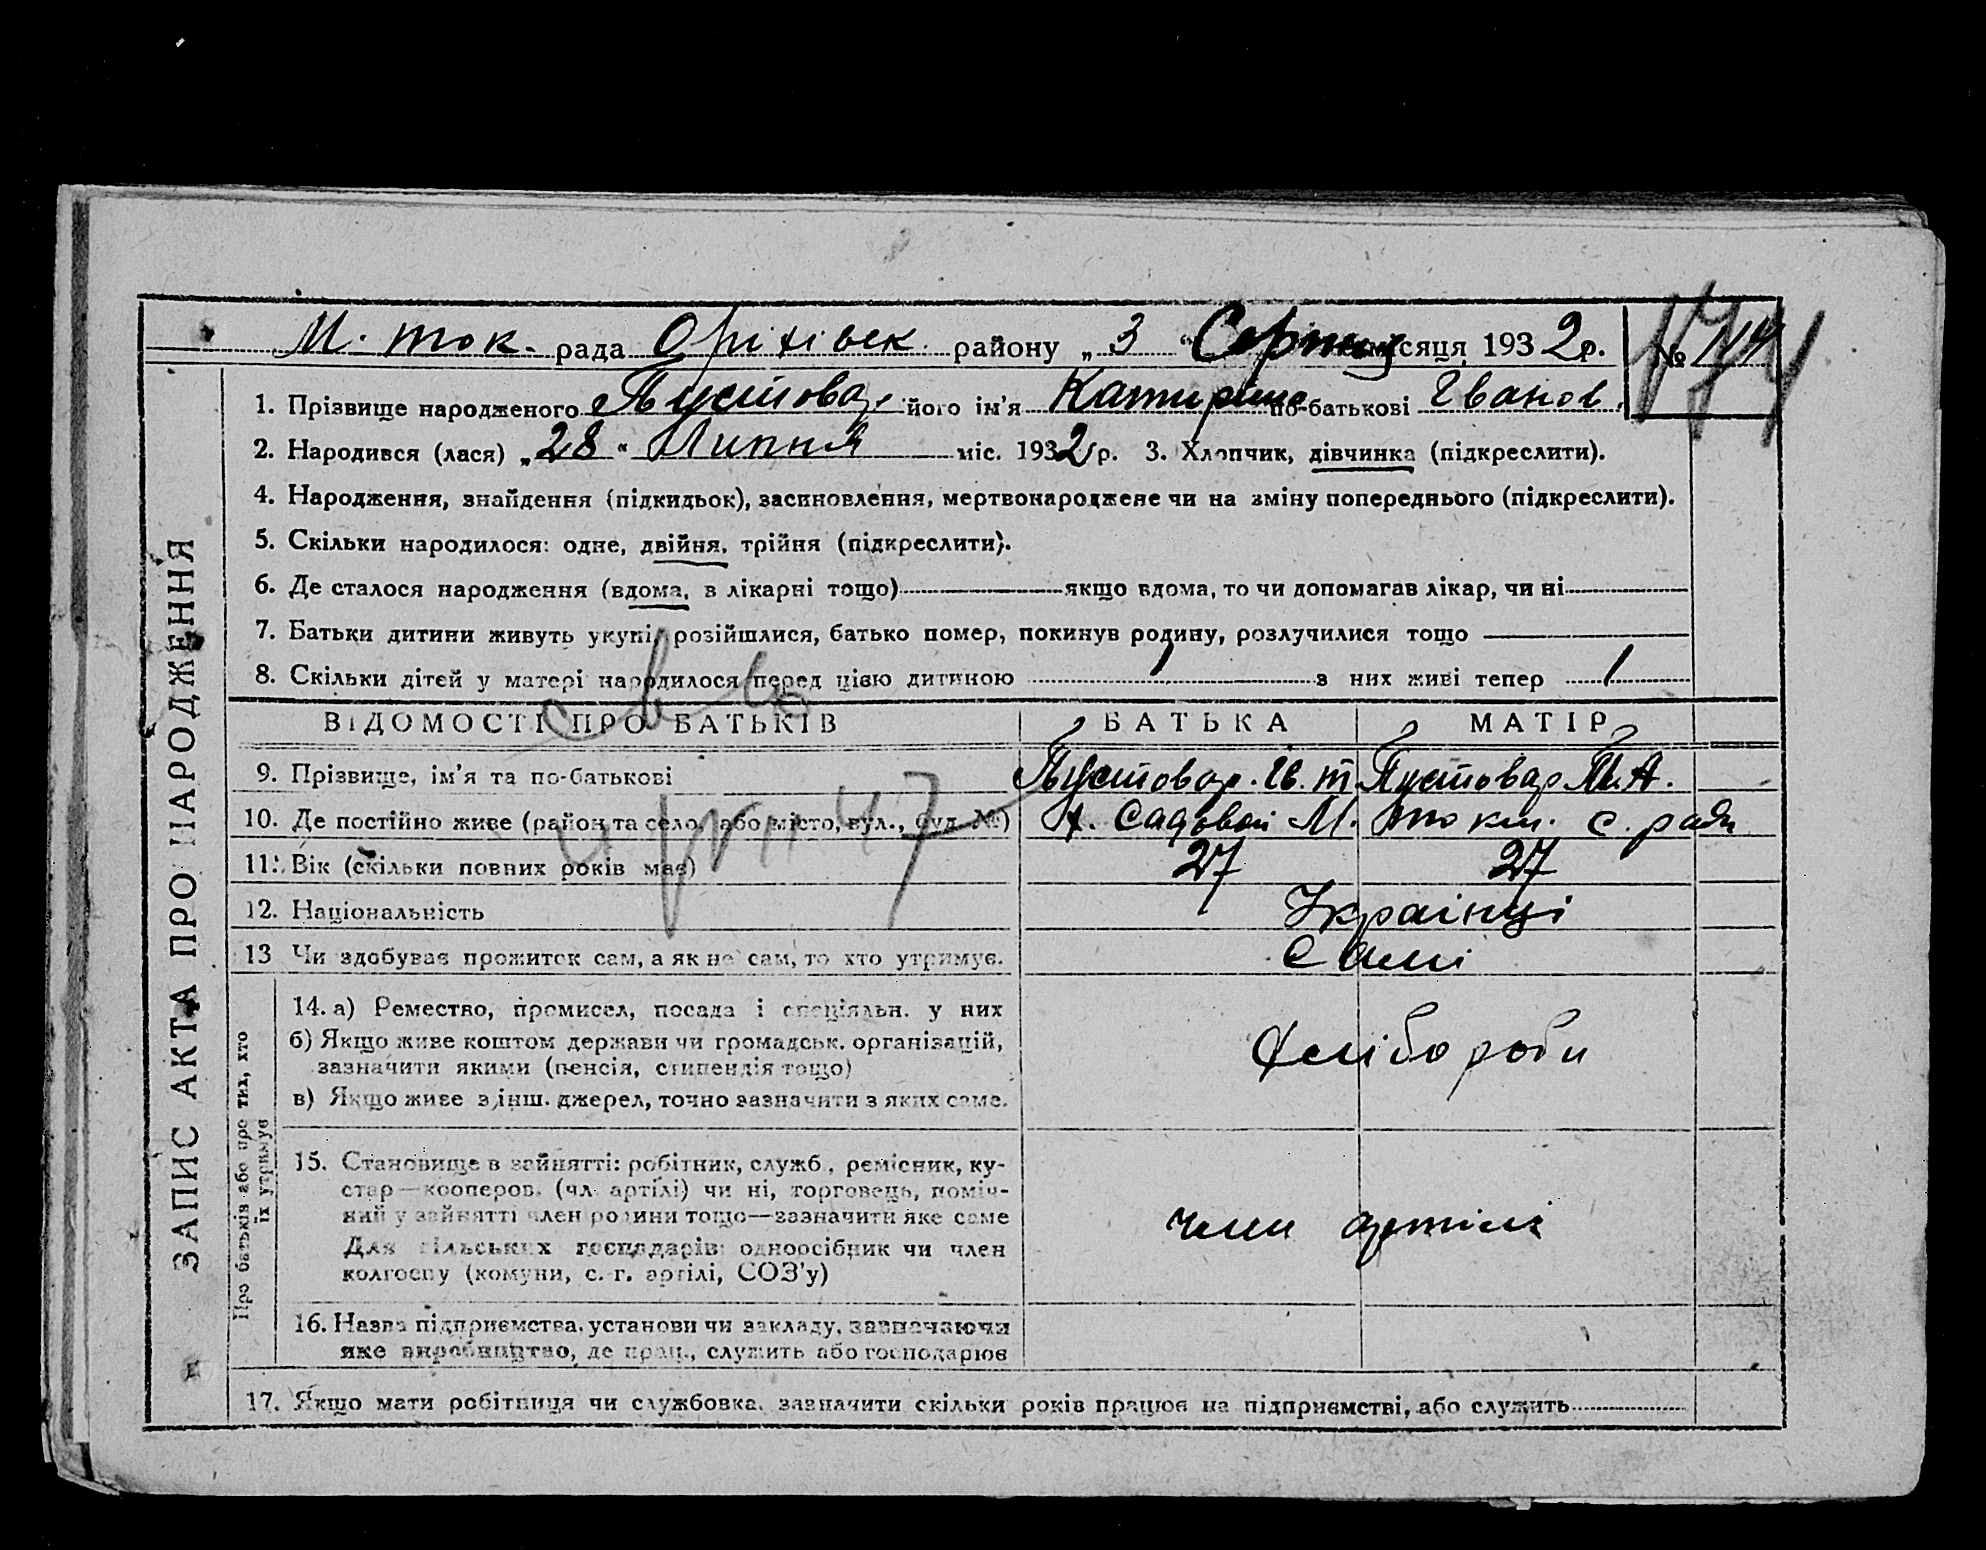 М. ток. рада Оріхівськ. району „3“ Серпня місяця 1932 р. № 114
174
1. Прізвище народженого Пустовар його ім'я Катирина по-батькові Іванов.
2. Народився (лася) „28“ Липня міс. 1932 р. 3. Хлопчик, дівчинка (підкреслити).
4. Народження, знайдення (підкидьок), засиновлення, мертвонароджене чи на зміну попереднього (підкреслити).
5. Скільки народилося: одне, двійня, трійня (підкреслити).
6. Де сталося народження (вдома, в лікарні тощо) якщо вдома, то чи допомагав лікар, чи ні
7. Батьки дитини живуть укупі, розійшлися, батько помер, покинув родину, розлучилися тощо
8. Скільки дітей у матері народилося перед цією дитиною 1 з них живі тепер 1
ВІДОМОСТІ ПРО БАТЬКІВ БАТЬКА МАТІР
9. Прізвище, ім'я та по-батькові Пустовар. Ів. Т Пустовар М.А.
10. Де постійно живе (район та село, або місто, вул., буд. №) х. Садовой М. Токм. с. рада
11. Вік (скільки повних років має) 27 27
12. Національність Українці
13 Чи здобуває прожиток сам, а як не сам, то хто утримує. Самі
14. а) Ремество, промисел, посада і спеціяльн. у них
б) Якщо живе коштом держави чи громадськ. організацій,
зазначити якими (пенсія, стипендія тощо)
в) Якщо живе з інш. джерел, точно зазначити з яких саме.
Хлібороби
15. Становище в зайнятті: робітник, служб., ремісник, ку-
стар—кооперов. (чл. артілі) чи ні, торговець, поміч-
ний у зайнятті член родини тощо—зазначити яке саме
Для сільських господарів: одноосібник чи член
колгоспу (комуни, с.-г. артілі, СОЗ'у)
член артілі
16. Назва підприємства, установи чи закладу, зазначаючи
яке виробництво, де прац., служить або господарює
17. Якщо мати робітниця чи службовка, зазначити скільки років працює на підприємстві, або служить
ЗАПИС АКТА ПРО НАРОДЖЕННЯ
Про батьків або про тих, хто
їх утримує